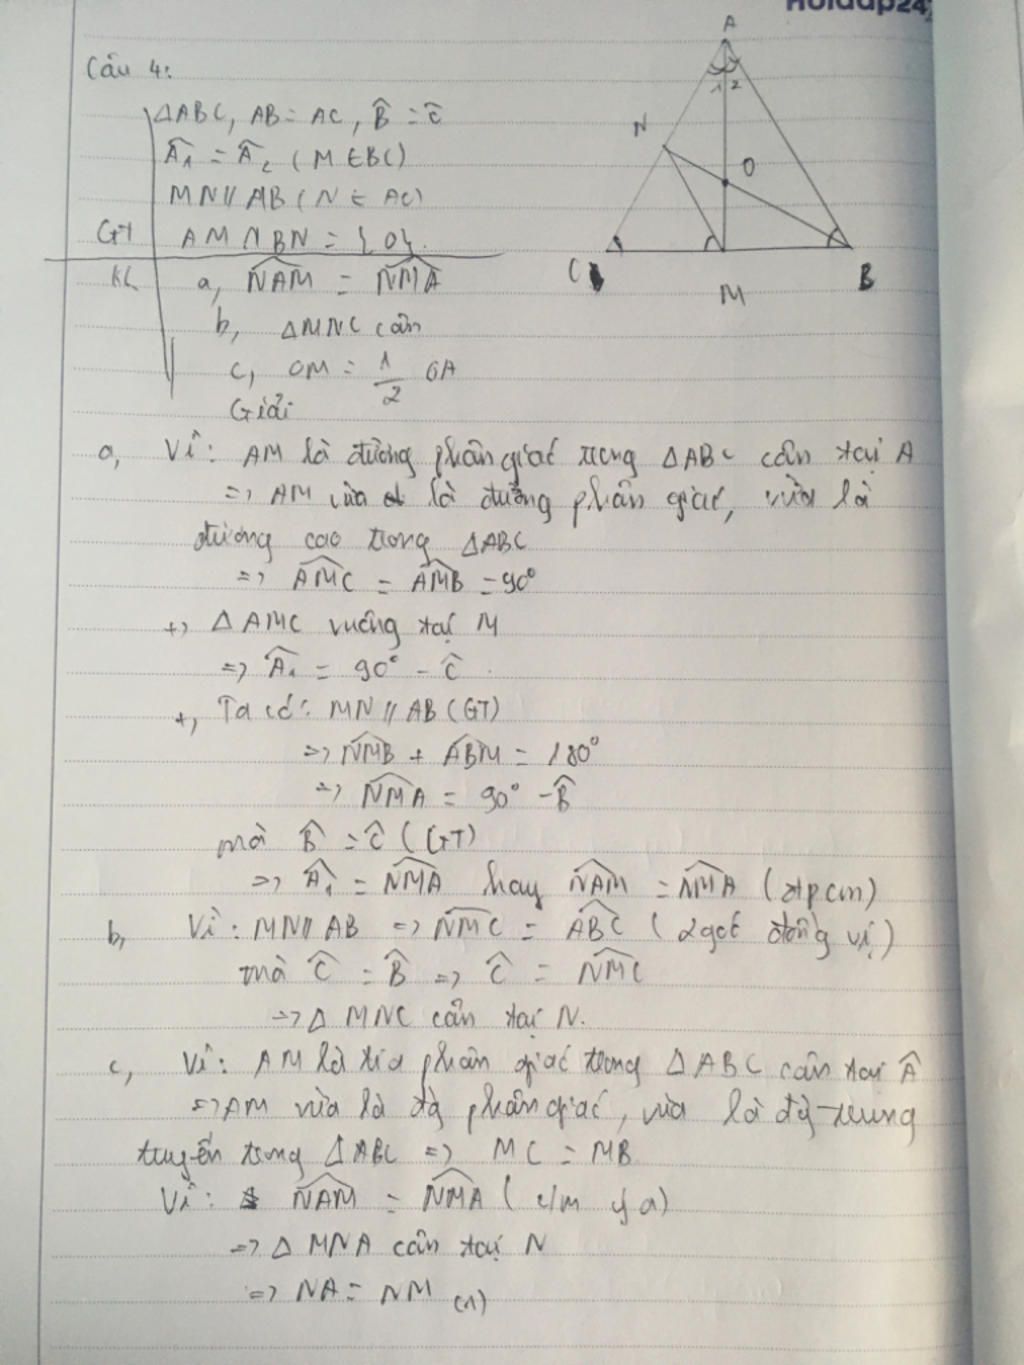 Hoidap247
Câu 4:
ΔABC, AB = AC, B̂ = Ĉ
Â₁ = Â₂ (M ∈ BC)
MN // AB (N ∈ AC)
GT AM ∩ BN = {O}.
KL a, \widehat{NAM} = \widehat{NMA}
b, ΔMNC cân
c, OM = 1/2 OA
Giải
A
1 2
N
O
C
M
B
a, Vì: AM là đường phân giác trong ΔABC cân tại A
=> AM vừa là đường phân giác, vừa là
đường cao trong ΔABC
=> \widehat{AMC} = \widehat{AMB} = 90°
+, ΔAMC vuông tại M
=> Â₁ = 90° - Ĉ.
+, Ta có: MN // AB (GT)
=> \widehat{NMB} + \widehat{ABM} = 180°
=> \widehat{NMA} = 90° - B̂
mà B̂ = Ĉ (GT)
=> Â₁ = \widehat{NMA} hay \widehat{NAM} = \widehat{NMA} (đpcm)
b, Vì: MN // AB => \widehat{NMC} = \widehat{ABC} (2 góc đồng vị)
mà Ĉ = B̂ => Ĉ = \widehat{NMC}
=> Δ MNC cân tại N.
c, Vì: AM là tia phân giác trong ΔABC cân tại Â
=> AM vừa là đg phân giác, vừa là đg trung
tuyến trong ΔABC => MC = MB
Vì: \widehat{NAM} = \widehat{NMA} (c/m ý a)
=> Δ MNA cân tại N
=> NA = NM (1)